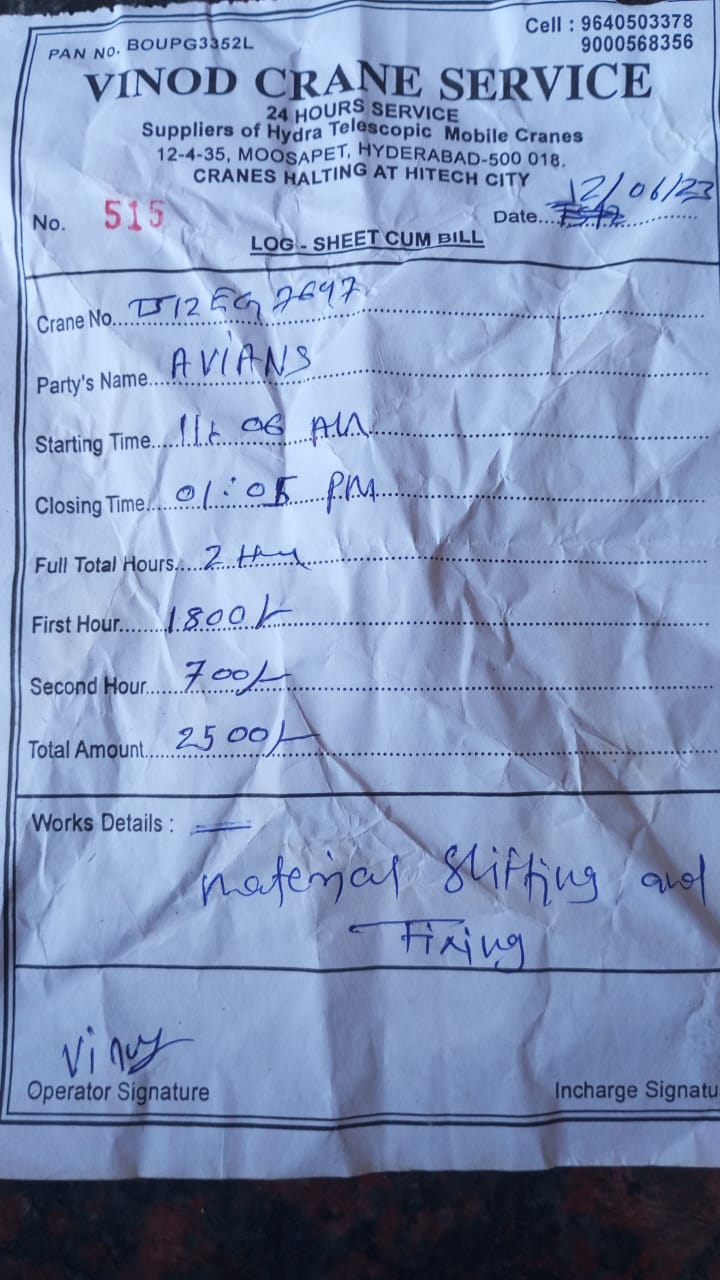 Cell : 9640503378
PAN NO. BOUPG3352L
9000568356
VINOD CRANE SERVICE
24 HOURS SERVICE
Suppliers of Hydra Telescopic Mobile Cranes
12-4-35, MOOSAPET, HYDERABAD-500 018.
CRANES HALTING AT HITECH CITY
No. 515
Date... 12/06/23
LOG - SHEET CUM BILL
Crane No....
Party's Name... AVIANS
Starting Time... 11: 06 AM
Closing Time... 01:05 PM
Full Total Hours.... 2
First Hour... 1800/-
Second Hour... 700/-
Total Amount... 2500/-
Works Details :
material Shifting and
Fixing
Operator Signature
Incharge Signatu